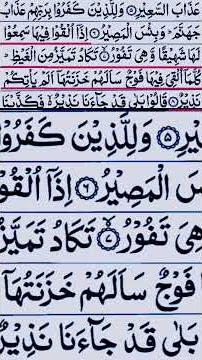 عَذَابَ السَّعِيْرِ ۝ وَلِلَّذِيْنَ كَفَرُوْا بِرَبِّهِمْ عَذَابُ
جَهَنَّمَ ؕ وَبِئْسَ الْمَصِيْرُ ۝ اِذَاۤ اُلْقُوْا فِيْهَا سَمِعُوْا
لَهَا شَهِيْقًا وَّهِىَ تَفُوْرُ ۝ تَكَادُ تَمَيَّزُ مِنَ الْغَيْظِ ؕ
كُلَّمَاۤ اُلْقِىَ فِيْهَا فَوْجٌ سَاَلَهُمْ خَزَنَتُهَاۤ اَلَمْ يَاْتِكُمْ
نَذِيْرٌ ۝ قَالُوْا بَلٰى قَدْ جَآءَنَا نَذِيْرٌ ۙ فَكَذَّبْنَا
يْرِ ۝۵ وَلِلَّذِيْنَ كَفَرُوْا
سَ الْمَصِيْرُ ۝۶ اِذَاۤ اُلْقُوْ
هِىَ تَفُوْرُ ۝۷ تَكَادُ تَمَيَّزُ
ا فَوْجٌ سَاَلَهُمْ خَزَنَتُهَاۤ
بَلٰى قَدْ جَآءَنَا نَذِيْرٌ